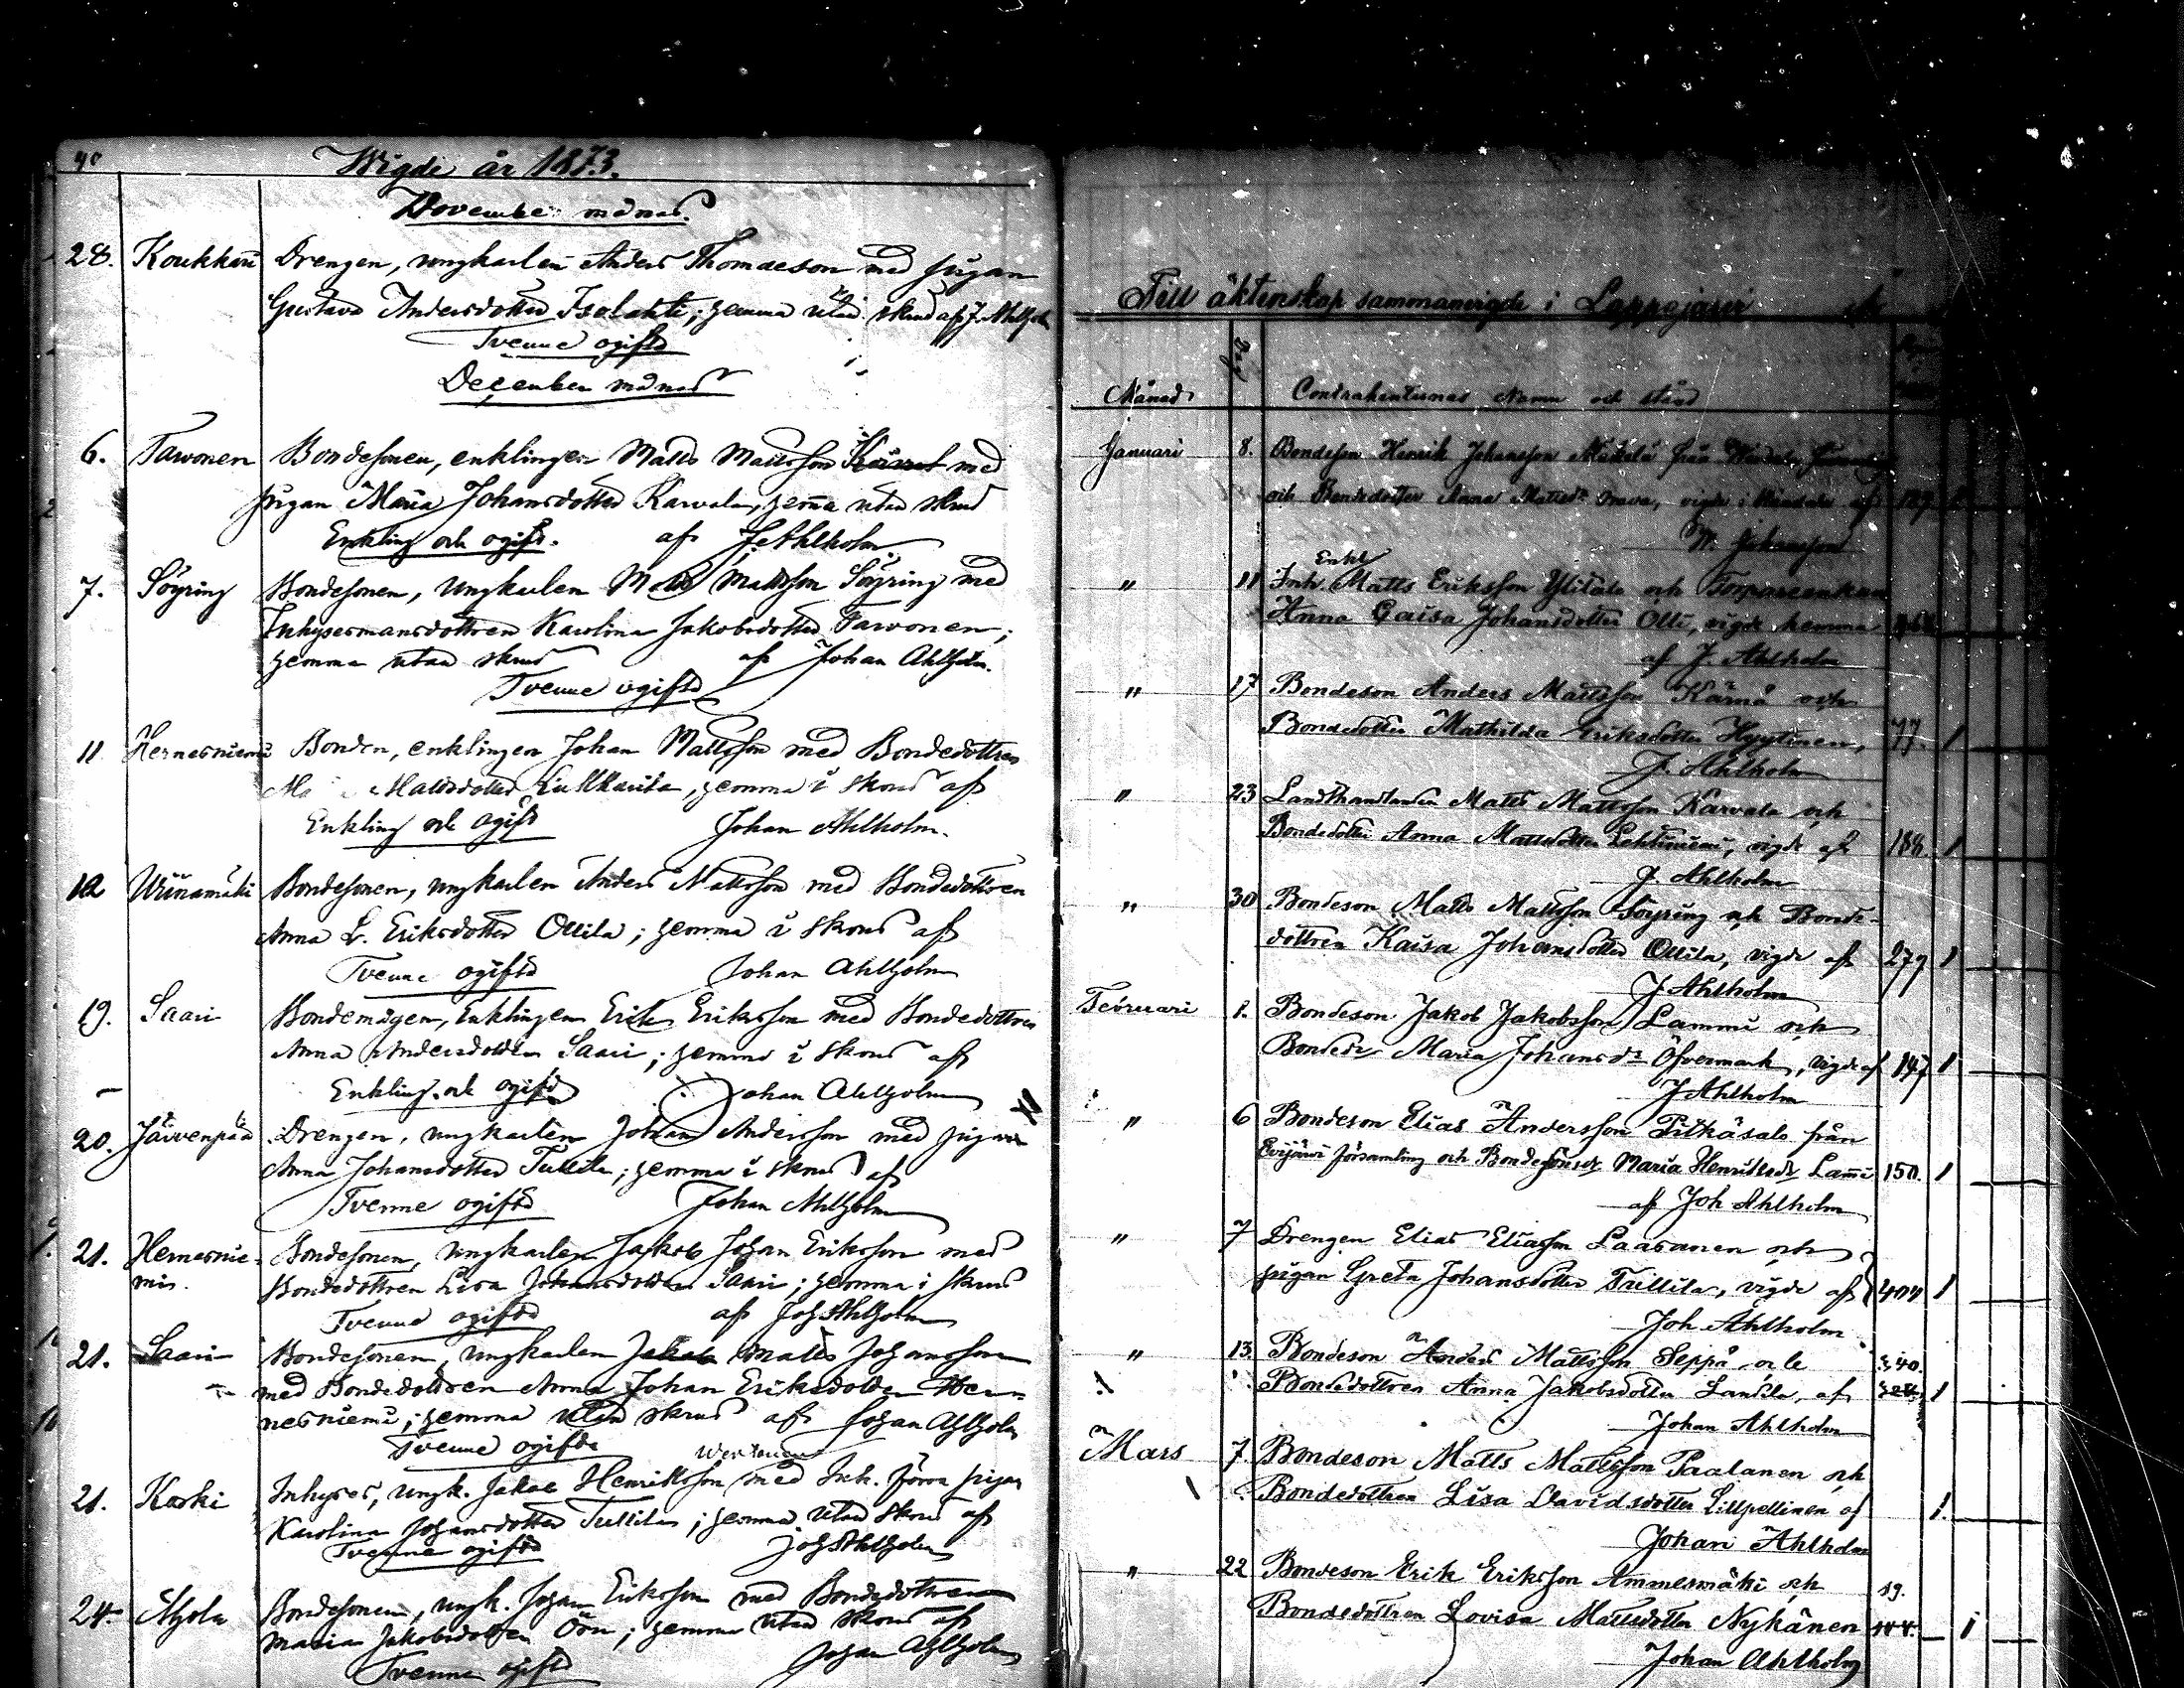 40 Wigde år 1873.
November månad.
28. Koukkari Drengen, ungkarlen Anders Thomasson med pigan
Gustava Andersdotter Isolahti; hemma utan skrud af J. Ahlholm
Tvenne ogifta
December månad
6. Tarvonen Bondesonen, enklingen Matts Mattsson med
pigan Maria Johansdotter Karvala, hemma utan skrud
Enkling och ogift. af J. Ahlholm
7. Söyring Bondesonen, ungkarlen Matts Mattsson Söyring med
Inhysesmansdottren Karolina Jakobsdotter Tarvonen;
hemma utan skrud af Johan Ahlholm.
Tvenne ogifta
11 Hernesniemi Bonden, enklingen Johan Mattsson med Bondedottren
Mattsdotter, hemma i skrud af
Enkling och ogift Johan Ahlholm.
12 Wiinamäki Bondesonen, ungkarlen Anders Mattsson med Bondedottren
Anna L. Eriksdotter Ollila; hemma i skrud af
Tvenne ogifta Johan Ahlholm
19. Saari Bondemågen, Enklingen Erik Eriksson med Bondedottren
Anna Andersdotter Saari; hemma i skrud af
Enkling och ogift Johan Ahlholm
20. Järvenpää Drengen, ungkarlen Johan Andersson med pigan
Anna Johansdotter Tullila; hemma i skrud af
Tvenne ogifta Johan Ahlholm
21. Hernesnie- Bondesonen, ungkarlen Jakob Johan Eriksson med
mi. Bondedottren Lisa Johansdotter Saari; hemma i skrud
Tvenne ogifta af Joh Ahlholm
21. Saari Bondesonen, ungkarlen Jakob Matts Johansson
med Bondedottren Anna Johan Eriksdotter Her-
nesniemi; hemma utan skrud af Johan Ahlholm
Tvenne ogifta
21. Koski Inhyses, ungk. Jakob Henriksson med Inh. förra pigan
Karolina Johansdotter Tullila; hemma utan skrud af
Tvenne ogifta Joh Ahlholm
24. Ahola Bondesonen, ungk. Johan Eriksson med Bondedottren
Maria Jakobsdotter Örn; hemma utan skrud af
Tvenne ogifta Johan Ahlholm
Till äktenskap sammanvigde i Lappajärvi
Månad Contrahenternas Namn och stånd
Januari 8. Bondeson Henrik Johansson Mäkelä från Windala
och Bondedotter Anna Mattsdr Orava, vigde i Windala af 189
W. Johansson
Enkl
" 11 Inh. Matts Eriksson Ylitalo och Torpareenkan
Anna Caisa Johansdotter Olli, vigde hemma
af J. Ahlholm
" 17 Bondeson Anders Mattsson Kärnä och
Bondedotter Mathilda Eriksdotter Hyytinen, 77. 1
J. Ahlholm
" 23 Landthandlanden Matts Mattsson Karvala och
Bondedotter Anna Mattsdotter Lehtiniemi, vigde af 188. 1
J. Ahlholm
" 30 Bondeson Matts Mattsson Söyring och Bonde-
dottren Kaisa Johansdotter Ollila, vigde af 279 1
J Ahlholm
Februari 1. Bondeson Jakob Jakobsson Lammi och
Bondedr Maria Johansdr Öfvermark, vigde af 197 1
J Ahlholm
" 6 Bondeson Elias Andersson Pitkäsalo från
Evijärvi församling och Bondesonsdr Maria Henriksdr Lammi 150. 1
af Joh Ahlholm
" 7 Drengen Elias Eliasson Laasanen och
pigan Greta Johansdotter Tullila, vigde af 404 1
Joh. Ahlholm
" 13. Bondeson Anders Mattsson Seppä och 340.
Bondedottren Anna Jakobsdotter Lantela, af 1
Johan Ahlholm
Mars 7. Bondeson Matts Mattsson Paalanen och
Bondedottren Lisa Davidsdotter Lillpellinen af 1.
Johan Ahlholm
" 22 Bondeson Erik Eriksson Ammesmäki och 19.
Bondedottren Lovisa Mattsdotter Nykänen 144. 1
Johan Ahlholm